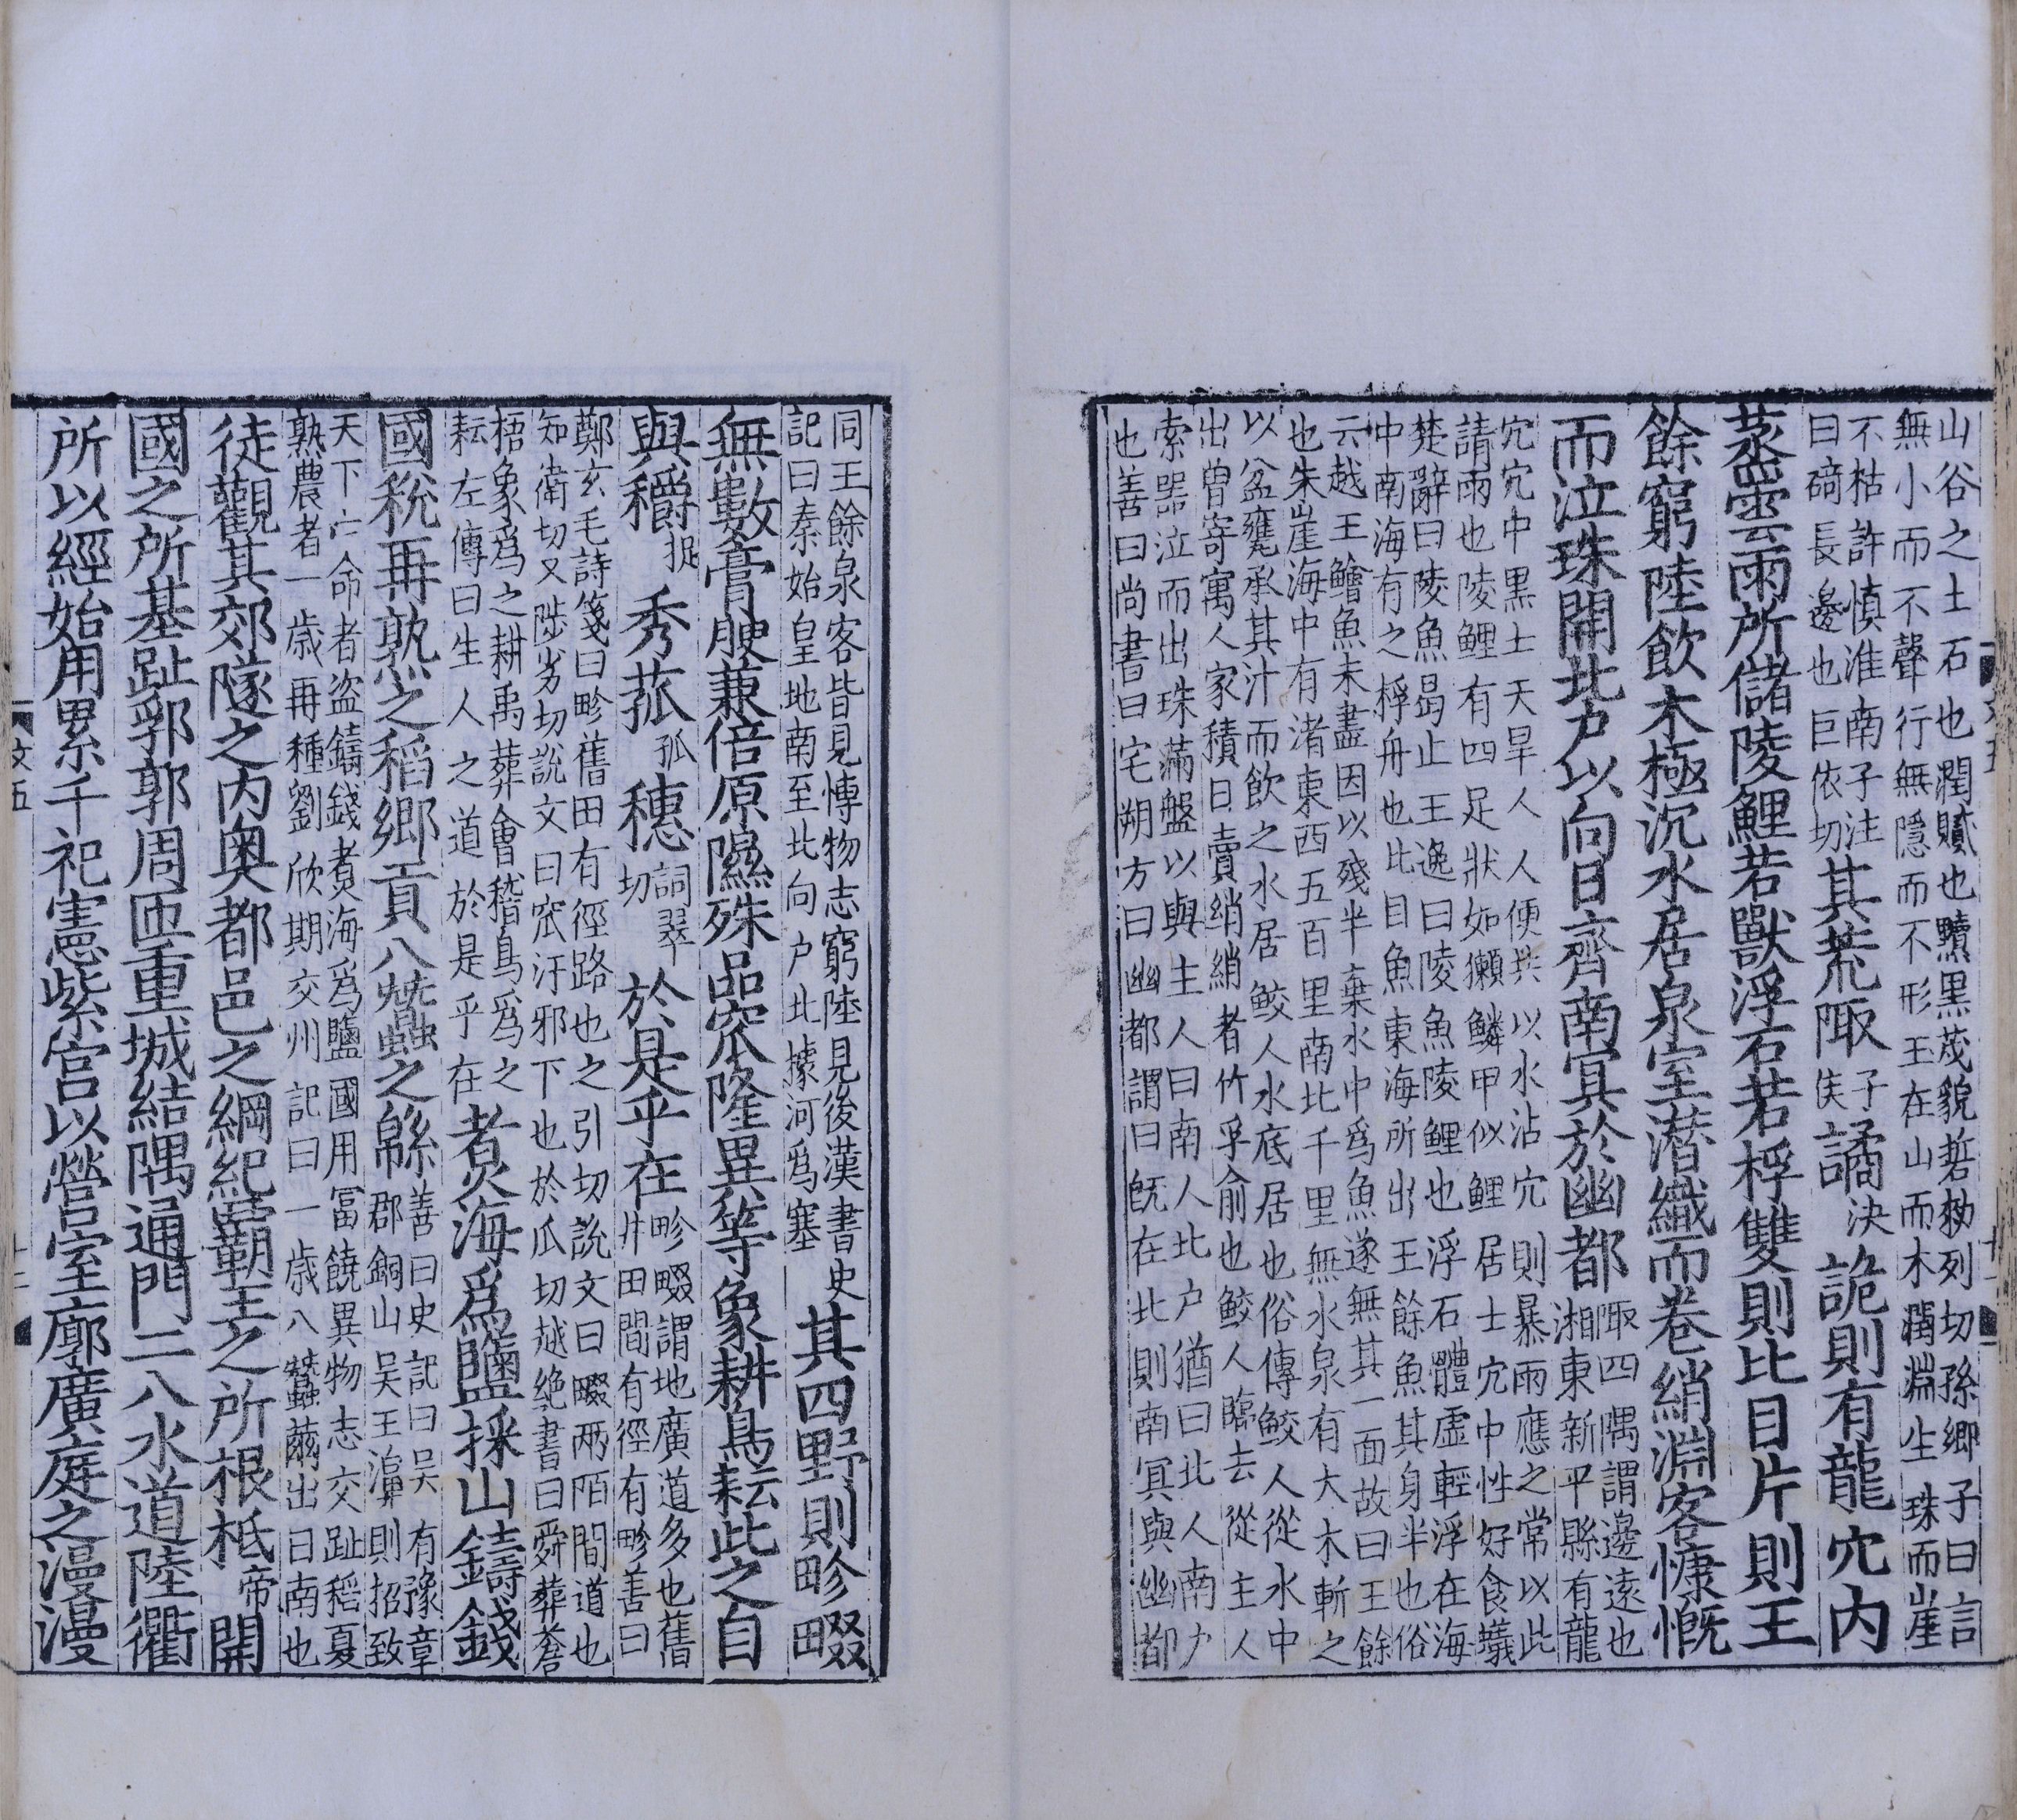 山谷之土石也潤黷也黷黑茂貌碆勑列切孫卿子曰言
無小而不聲行無隱而不形玉在山而木潤淵生珠而崖
不枯許慎淮南子注
曰碕長邊也巨依切其荒陬子侯譎決詭則有龍穴內
蒸雲雨所儲陵鯉若獸浮石若桴雙則比目片則王
餘窮陸飲木極沉水居泉室潛織而卷綃淵客慷慨
而泣珠開北戶以向日齊南冥於幽都陬四隅謂邊遠也
湘東新平縣有龍
穴穴中黑土天旱人人便共以水沾穴則暴雨應之常以此
請雨也陵鯉有四足狀如獺鱗甲似鯉居士穴中性好食蟻
楚辭曰陵魚曷止王逸曰陵魚陵鯉也浮石體虛輕浮在海
中南海有之桴舟也比目魚東海所出王餘魚其身半也俗
云越王鱠魚未盡因以殘半棄水中爲魚遂無其一面故曰王餘
也朱崖海中有渚東西五百里南北千里無水泉有大木斬之
以盆甕承其汁而飲之水居鮫人水底居也俗傳鮫人從水中
出曾寄寓人家積日賣綃綃者竹孚俞也鮫人臨去從主人
索器泣而出珠滿盤以與主人曰南人北户猶曰北人南户
也善曰尚書曰宅朔方曰幽都謂曰旣在北則南冥與幽都
同王餘泉客皆見愽物志窮陸見後漢書史
記曰秦始皇地南至北向户北據河爲塞其四野則畛畷
無數膏腴兼倍原隰殊品窊隆異等象耕鳥耘此之自
與穱捉秀菰孤穗詞翠切於是乎在畛畷謂地廣道多也舊
井田間有徑有畛善曰
鄭玄毛詩箋曰畛舊田有徑路也之引切說文曰畷兩陌間道也
知衛切又陟劣切說文曰窊汙邪下也於瓜切越絶書曰舜葬蒼
梧象爲之耕禹葬會稽鳥爲之
耘左傳曰生人之道於是乎在煮海爲鹽採山鑄錢
國稅再熟之稻鄉貢八蠶之緜善曰史記曰吴有豫章
郡銅山吴王濞則招致
天下亡命者盗鑄錢煮海爲鹽國用冨饒異物志交趾稻夏
熟農者一歲再種劉欣期交州記曰一歲八蠶繭出日南也
徒觀其郊隧之內奥都邑之綱紀霸王之所根柢帝開
國之所基趾郛郭周匝重城結隅通門二八水道陸衢
所以經始用累千祀憲紫宫以營室廓廣庭之漫漫
文五